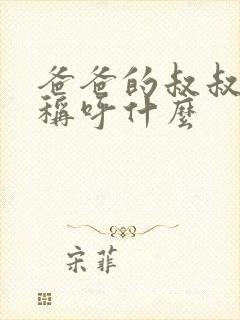 爸爸的叔叔
稱呼什麼
宋菲